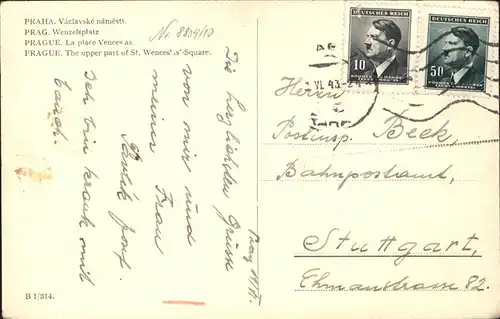 PRAHA. Václavské náměstí.
PRAG. Wenzelsplatz
PRAGUE. La place Vences as.
PRAGUE. The upper part of St. Wences as'-Square.
Nr. 8809/10
DEUTSCHES REICH
10
BÖHMEN UND MÄHREN
DEUTSCHES REICH
50
BÖHMEN UND MÄHREN
VI. 43
Prag
Die herzlichsten Grüsse
von mir und
meiner Frau
Ich bin krank mit
Herrn
Postinsp. Beck,
Bahnpostamt,
Stuttgart,
Ehmannstrasse 82.
B 1/314.